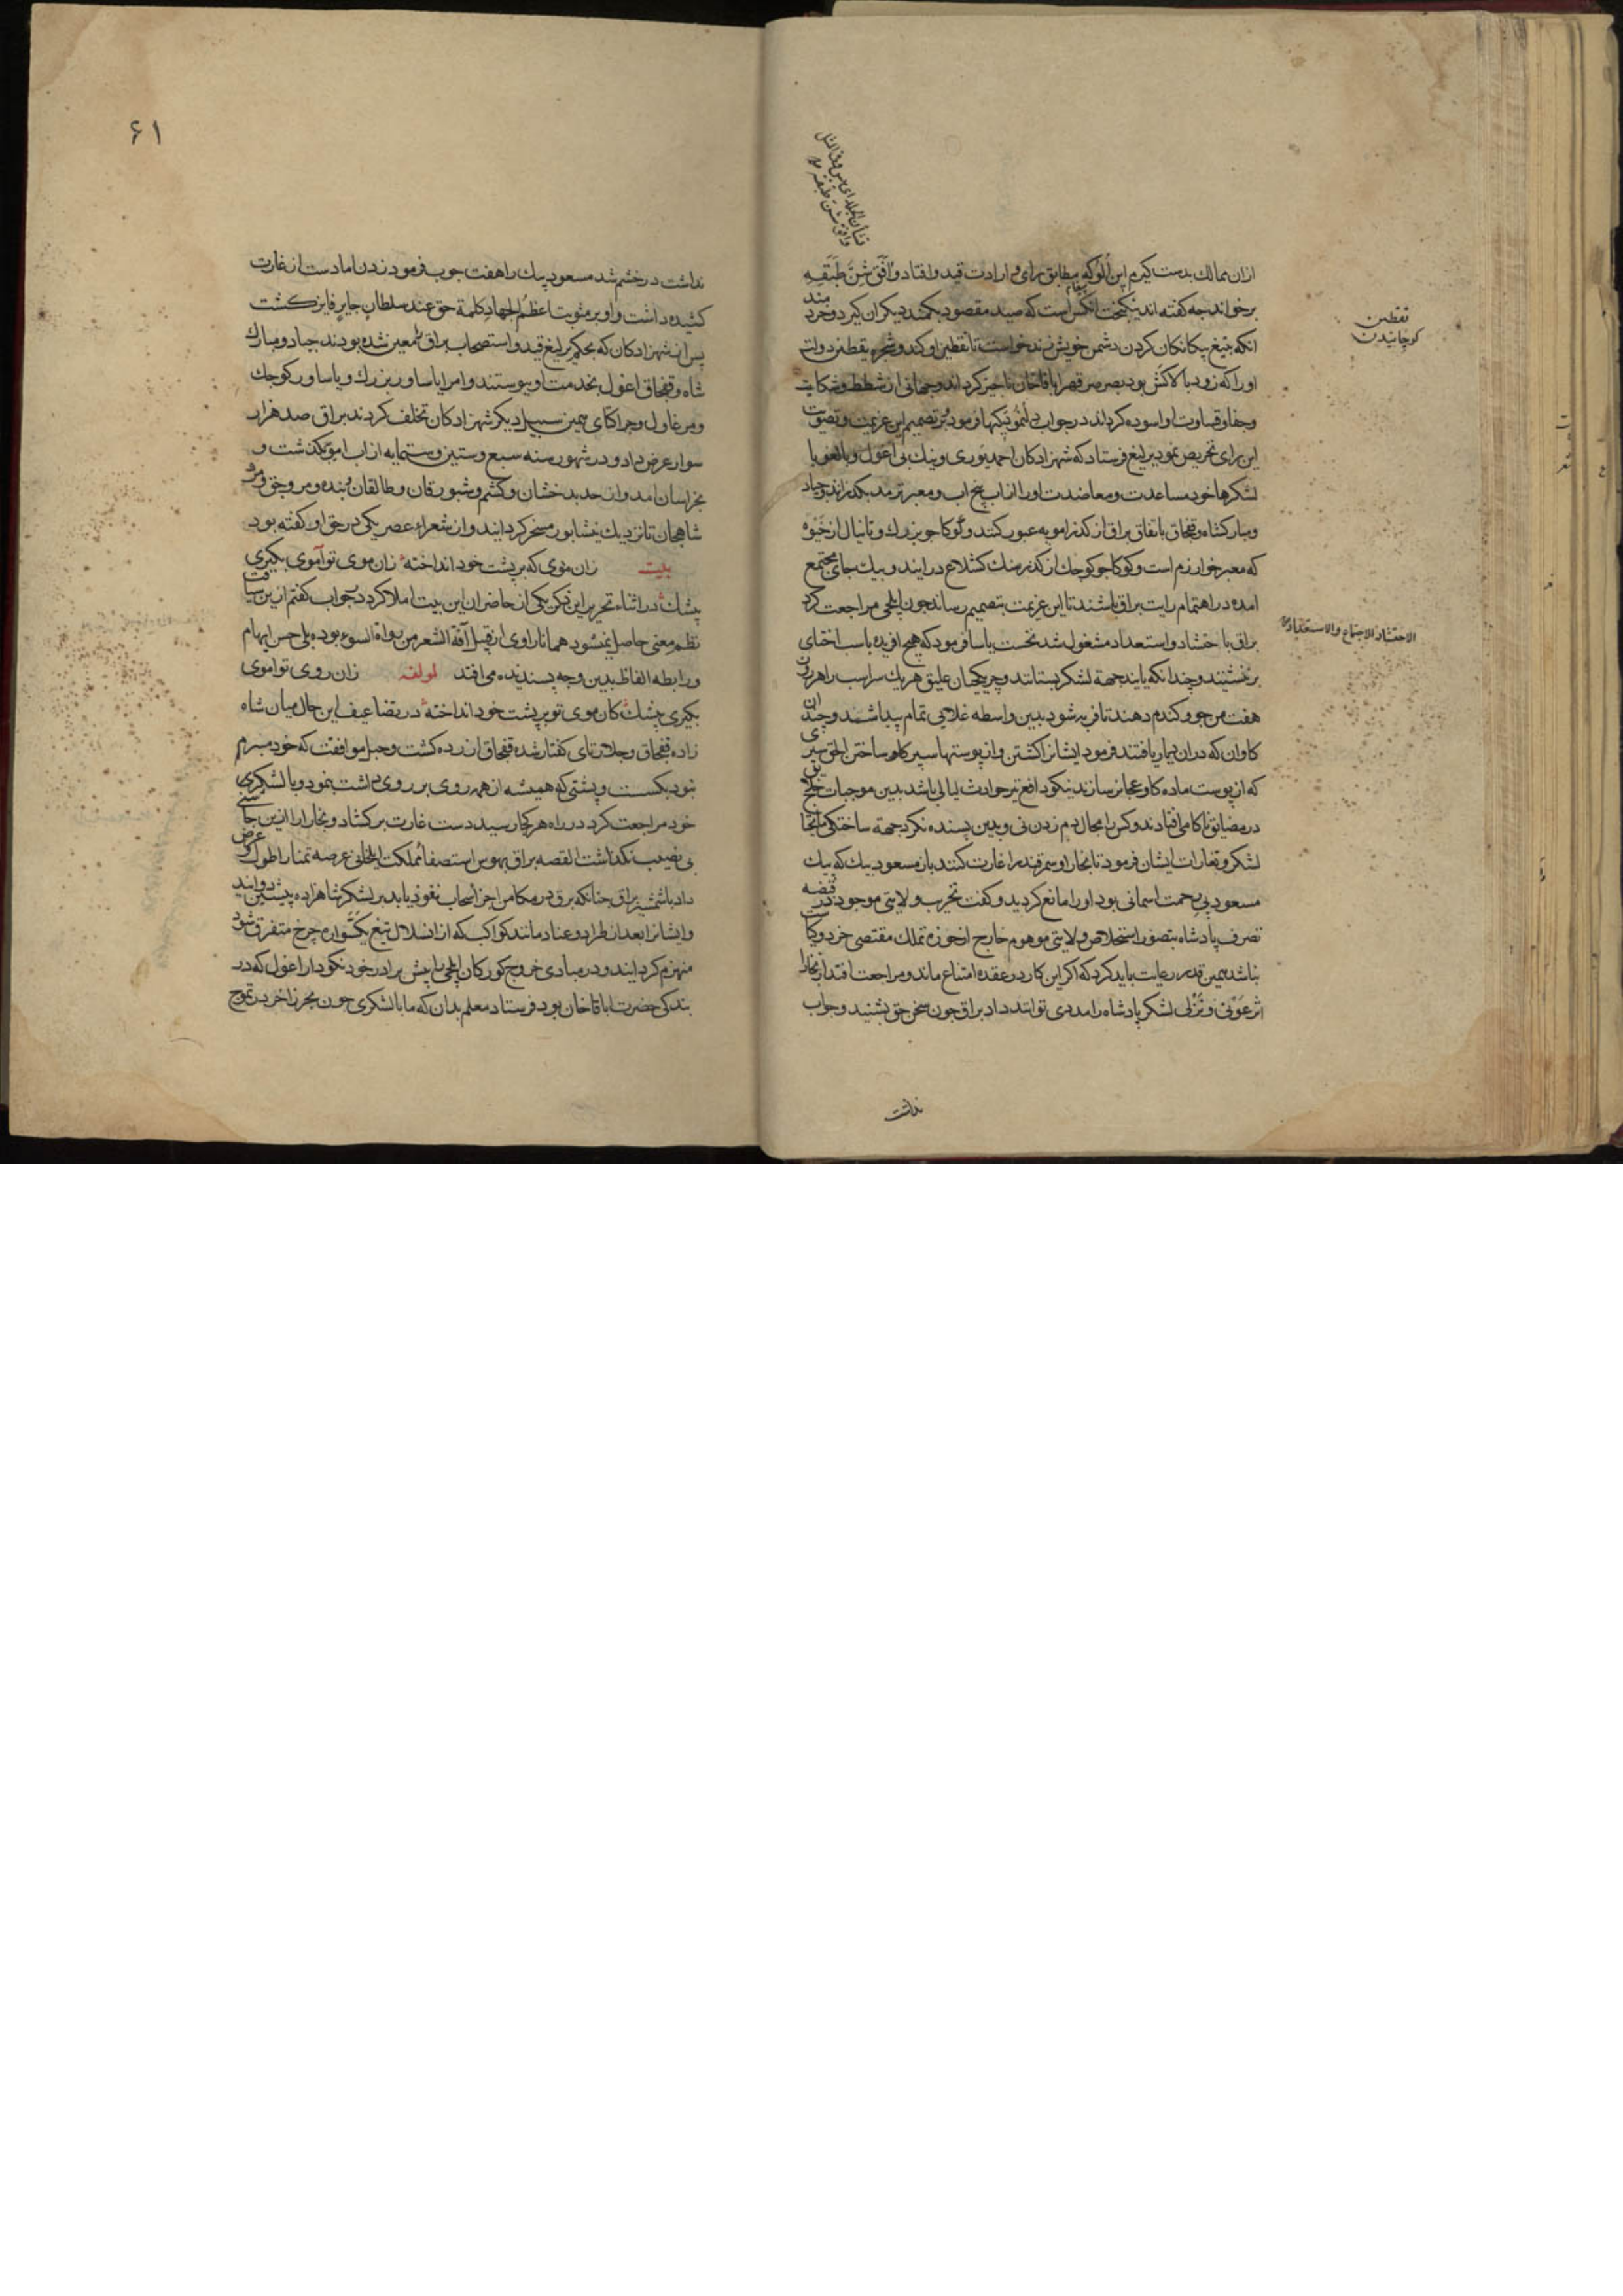 ازان ممالک بدست کیرم این اُلوکه مطابق رای و ارادت قیدو افتاد وافَقَ شَنٌّ طَبَقَه
برخواند جه کفته اند نیکبخت انکس است که صید مقصود بکمند دیکران کیرد و خردمند
انکه بتیغ بیکانکان کردن دشمن خویش زند خواست تا تقطین او کند و شجره یقطین دولت
اورا که زود بالا کش بود بصرصر قهر اباقاخان ناجیز کرداند و جهانی از شطط و شکایت
وجفا و قساوت او اسوده کرداند در جواب فرمود بر تصمیم این عزیمت و تصویب
این رای تحریض نمود یرلیغ فرستاد که شهزادکان احمد بوری و نیک بی اغول و بالغو با
لشکرها خود مساعدت و معاضدت اورا از اب پنج اب و معبر ترمد بکذرانند و جباد
و مبارکشاه و قبجاق باتفاق براق از کذر امویه عبور کنند و کوکاجو بزرک و تانیال از خیوه
که معبر خوارزم است و کوکاجو کوجک از کذر منک کشلاغ در ایند و بیک جای مجتمع
امده در اهتمام رایت براق باشند تا این عزیمت بتصمیم رساند جون ایلجی مراجعت کرد
براق با حتشاد و استعداد مشغول شد نخست یاسا فرمود که هیج افریده با سب اختای
برننشیند و جندانکه یابند جهة لشکر بستانند و جریکیان علیق هر یک سر اسب را هر روز
هفت من جو و کندم دهند تا فربه شود بدین واسطه غلایی تمام پیدا شد و جندان
کاوان که دران دیار یافتند فرمود ایشانرا کشتن و از پوستها سپر کاو ساختن الحق سپری
که از پوست ماده کاو عجایز سازند نیکو دافع تیر حوادث لیالی باشد بدین موجبات خلایق
در مضایق ناکامی افتادند و کس را مجال دم زدن نی و بدین پسنده نکرد جهة ساختکی مایحتاج
لشکر و تغارات ایشان فرمود تا بخارا و سمرقند را غارت کنند باز مسعود بیک که پیک
مسعود پی رحمت اسمانی بود اورا مانع کردید و کفت تخریب ولایتی موجود در قبضه
تصرف پادشاه بتصور استخلاص ولایتی موهوم خارج از حوزه تملک مقتضی خرد و کیاست
نباشد همین قدر رعایت باید کرد که اکر این کار در عقده امتناع ماند و مراجعت افتد از بخارا
اثر عونی و نزلی لشکر پادشاه را مددی توانند داد براق جون سخن حق بشنید و جواب
نداشت
تقطین
کوچانیدن
الاحتشاد الاجتماع والاستعداد
۶۱
نداشت در خشم شد مسعود بیک را هفت جوب فرمود زدن اما دست از غارت
کشیده داشت و او بر مثوبت اعظم الجهاد کلمة حق عند سلطان جابر فایز کشت
پس ان شهزادکان که بحکم یرلیغ قیدو استصحاب براق را معین شده بودند جباد و مبارک
شاه و قبجاق اغول بخدمت او پیوستند و امرا یاساور بزرک و یاساور کوجک
ومرغاول و جراکتای همین سبیل دیکر شهزادکان تخلف کردند براق صد هزار
سوار عرض داد و در شهور سنه سبع وستین وستمایه از اب امویه بکذشت و
بخراسان امد و از حد بدخشان و کشم و شبورقان و طالقان و بنده و مروجق و مرو
شاهجان تا نزدیک نیشابور مسخر کردانیدند و از شعراء عصر یکی در حق او کفته بود
بیت    زان موی که بر پشت خود انداخته    زان موی تو آموی بکیری
پیشک در اثناء تحریر این ذکر یکی از حاضران این بیت املا کرد در جواب کفتم ازین سیاقت
نظم معنی حاصل نمیشود همانا راوی از قبیل آفة الشعر من رواة السوء بوده بلی حس ایهام
ورابطه الفاظ بدین وجه پسندیده می افتد    لمولفه    زان روی تو اموی
بکیری پیشک    کان موی تو بر پشت خود انداخته    در تضاعیف این حال میان شاه
زاده قبجاق و جلایرتای کفتار شده قبجاق ازرده کشت و حبل موافقت که خود مبرم
نبود بکسست و پشتی که همیشه از همه روی بر روی داشت بنمود و با لشکری
خود مراجعت کرد در راه هر کجا رسید دست غارت برکشاد و بخارا را ازین جاشنی
بی نصیب نکذاشت القصه براق بهوس استصفاء مملکت ایلخانی عرصه تمنا را طول و عرض
داد با شمشیر براق جنانکه برق در مکامن اجزاء سحاب نفوذ یابد بر لشکر شاهزاده پیشین دوانید
وایشانرا بعد از طراد و عناد مانند کواکب که از انسلال تیغ یکسواره جرخ متفرق شود
منهزم کردانید و در مبادی خروج کورکان ایلجی را پیش برادر خود نکودار اغول که در
بندکی حضرت اباقاخان بود فرستاد معلم بدان که ما با لشکری جون بحر زاخر در تموج